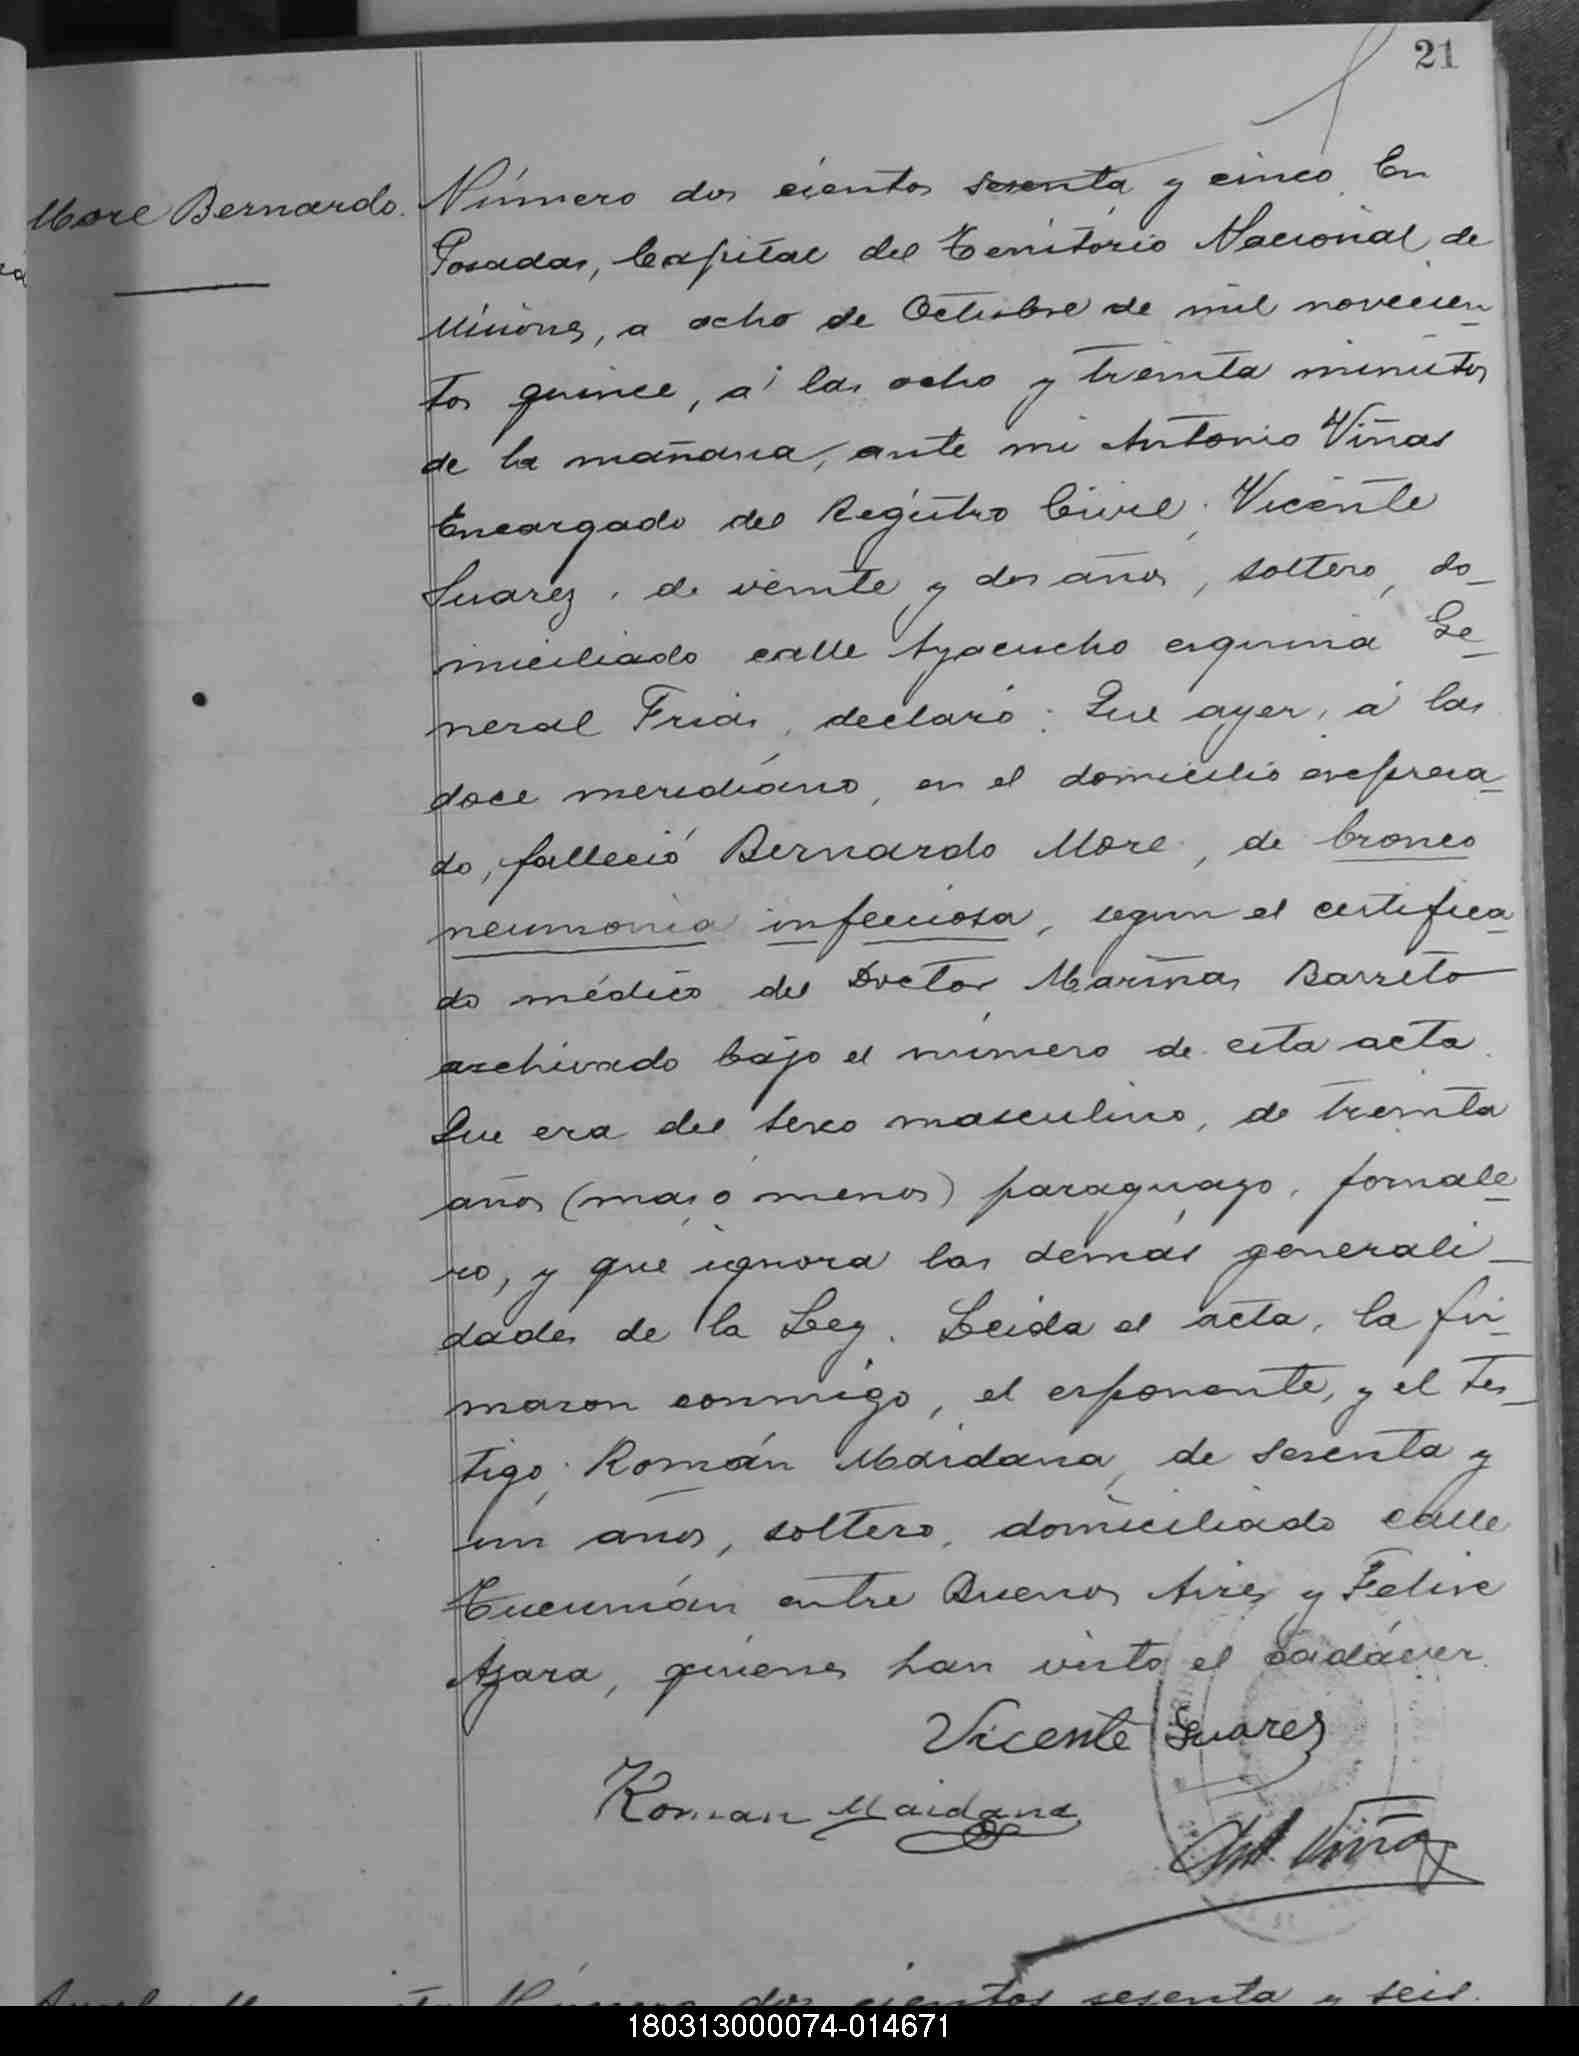 21
More Bernardo.
Número dos cientos sesenta y cinco. En
Posadas, Capital del Territorio Nacional de
Misiones, a ocho de Octubre de mil novecien
tos quince, á las ocho y treinta minutos
de la mañana, ante mi Antonio Viñas
Encargado del Registro Civil, Vicente
Suarez, de veinte y dos años, soltero, do_
miciliado calle Ayacucho esquina Ge_
neral Frias, declaró: Que ayer, á las
doce meridiano, en el domicilio expresa_
do, falleció Bernardo More, de bronco
neumonia infecciosa, segun el certifica_
do médico del Doctor Mariñas Barreto
archivado bajo el número de esta acta.
Que era del sexo masculino, de treinta
años (mas ó menos) paraguayo, jornale_
ro, y que ignora las demás generali_
dades de la Ley. Leida el acta, la fir_
maron conmigo, el exponente, y el tes_
tigo, Román Maidana, de sesenta y
un años, soltero, domiciliado calle
Tucumán entre Buenos Aires y Felix
Azara, quienes han visto el cadáver.
Vicente Suarez
Roman Maidana
Ant. Viñas
Número dos cientos sesenta y seis.
180313000074-014671